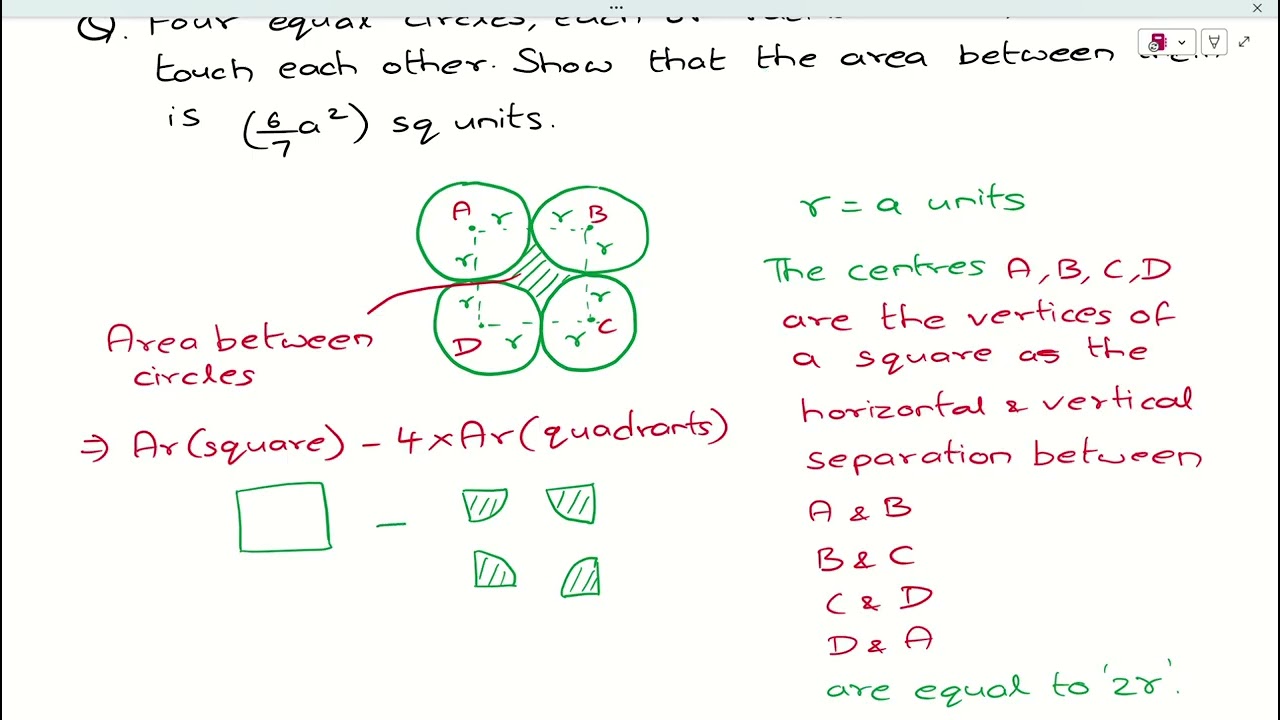 Q. Four equal circles, each of
touch each other. Show that the area between them
is (6/7 a²) sq units.
A r r B
r r
r r
D r r C
Area between
circles
⇒ Ar(square) - 4×Ar(quadrants)
-
r = a units
The centres A, B, C, D
are the vertices of
a square as the
horizontal & vertical
separation between
A & B
B & C
C & D
D & A
are equal to '2r'.